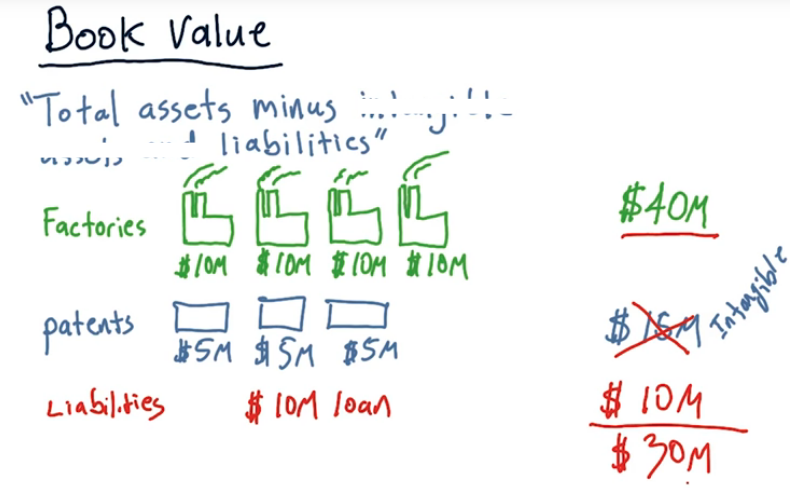 Book Value
"Total assets minus
liabilities"
Factories
$10M $10M $10M $10M
$40M
patents
$5M $5M $5M
$15M Intangible
Liabilities $10M loan $10M
$30M